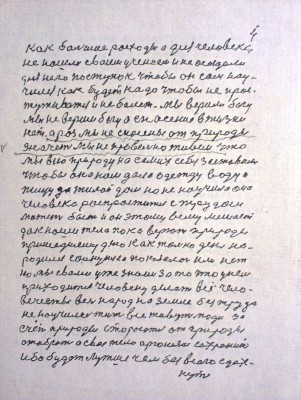 как большие расходы а для человека
не нашли своим ученьем и не создали
для него поступок чтобы он сам нау-
чился как будет надо чтобы не прос-
туживаться и не болеть. Мы верим богу
мы не верим богу а спасения в жизни
нет, а раз мы не спасены от природы
значит мы не правильно живем что
мы всю природу на самих себя заставили
чтобы она нам дала одежду еду и
пищу да жилой дом но не научила она
человека
может быть и он этому всему мешает
дак наши тела пока верют природы
пришедшему дню как только день на-
родился солнушко показалось или нет
но мы своим уже знаем за то что днем
приходится человеку делать всё чело-
вечество весь народ на земле без труда
не научился жить все живут люди за
счёт природы стороется от природы
отобрать а свое тело организм сохранить
ибо будет лутше чем без всего сдох-
нуть